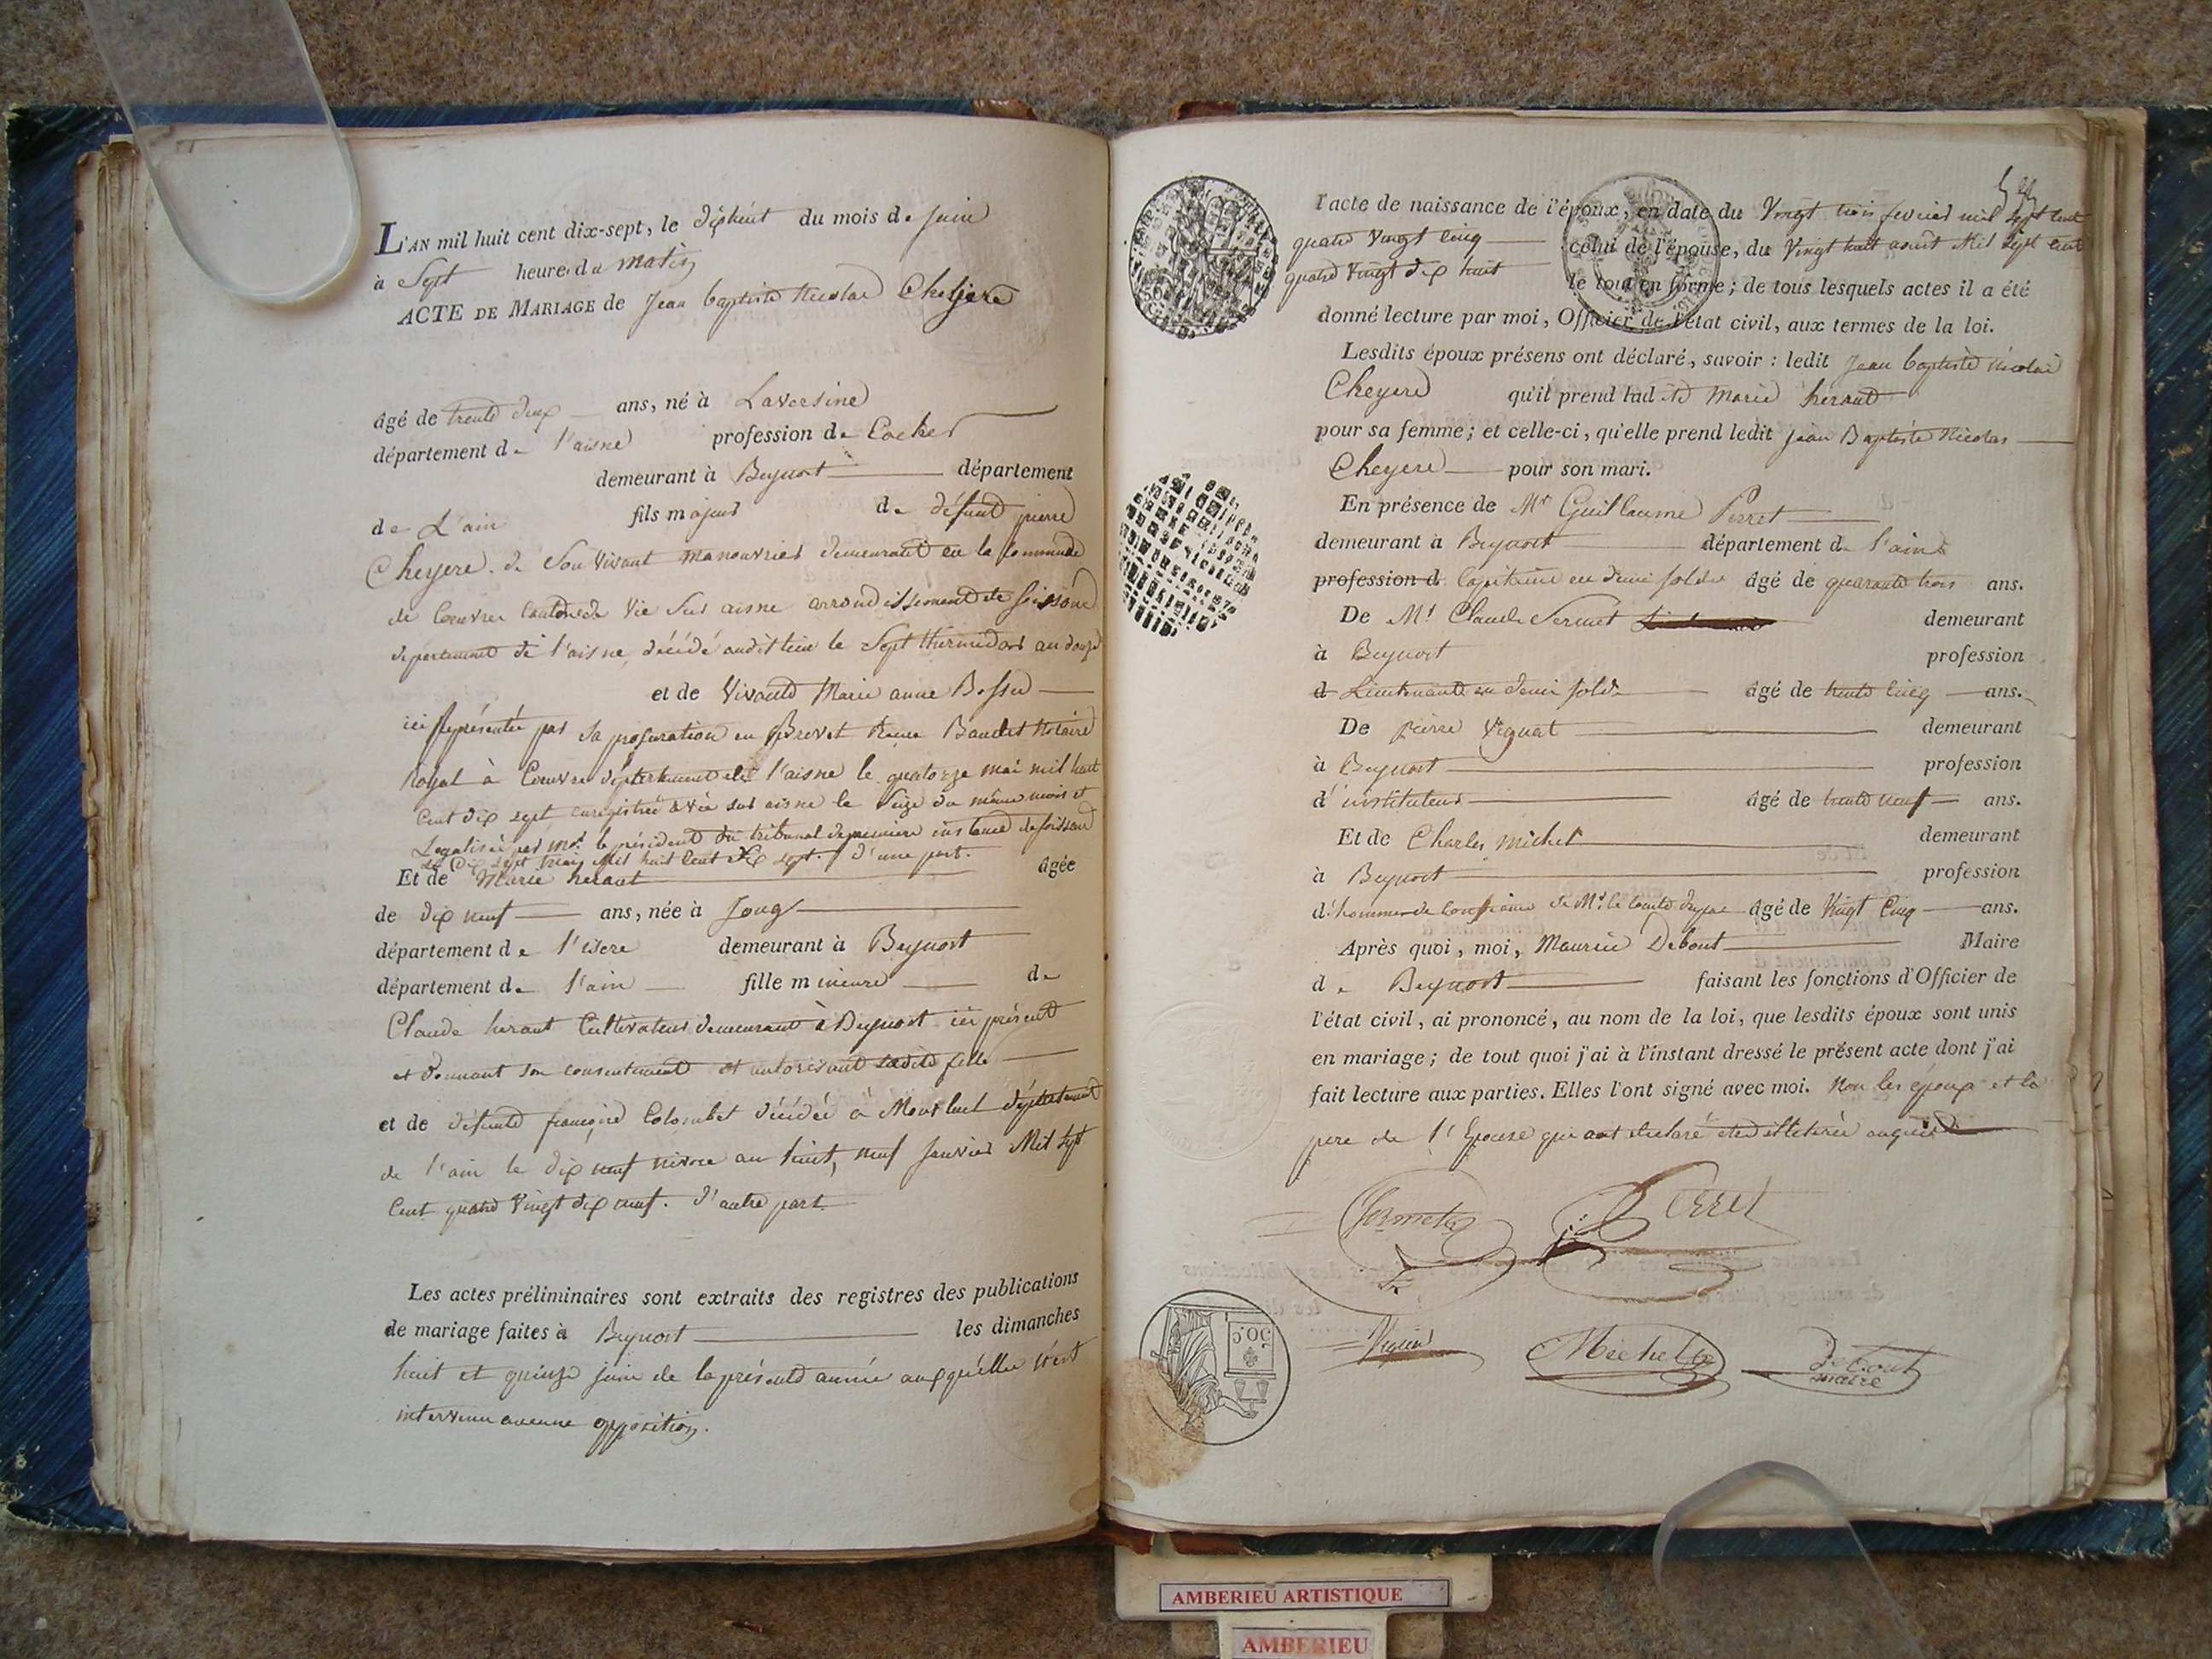 L'AN mil huit cent dix-sept, le dixhuit du mois de juin
à Sept heures du matin
ACTE DE MARIAGE de Jean baptiste Nicolas Cheyere
âgé de trente deux ans, né à Laversine
département de l'aisne profession de Cocher
demeurant à Beynost département
de L'ain fils majeur de défunt pierre
Cheyere de Son vivant manouvrier demeurant en la Commune
de Coeuvre canton de Vic Sur aisne arrondissement de Soissons
departement de l'aisne, décédé audit lieu le Sept thermidor an douze
et de vivante Marie anne Bossu
ici représentée par sa procuration en Brevet Baudet Notaire
Royal à Coeuvre département de l'aisne le quatorze mai mil huit
Cent dix sept, enregistrée à vic sur aisne le Seize du même mois et
Legalisée par Mr. le président du tribunal de premiere instance de soissons
le Dix Sept Mai Mil huit Cent Dix sept. d'une part.
Et de Marie heraut âgée
de dix neuf ans, née à Jong
département de l'isere demeurant à Beynost
département de l'ain fille mineure de
Claude heraut Cultivateur demeurant à Beynost ici présent
et donnant son consentement et autorisant Ladite fille
et de défunte françoise Colombet décédée à Montluel département
de l'ain le dix neuf nivose an huit, neuf Janvier Mil sept
Cent quatre vingt dix neuf. d'autre part
Les actes préliminaires sont extraits des registres des publications
de mariage faites à Beynost les dimanches
huit et quinze juin de la présente année auxquelles n'est
intervenu aucune opposition.
l'acte de naissance de l'époux, en date du Vingt trois fevrier mil sept cent
quatre vingt cinq celui de l'épouse, du Vingt huit août Mil sept cent
quatre vingt dix huit le tout en forme; de tous lesquels actes il a été
donné lecture par moi, Officier de l'état civil, aux termes de la loi.
Lesdits époux présens ont déclaré, savoir : ledit Jean baptiste Nicolas
Cheyere qu'il prend ladite Marie heraut
pour sa femme; et celle-ci, qu'elle prend ledit Jean Baptiste Nicolas
Cheyere pour son mari.
En présence de Mr Guillaume Perret
demeurant à Beynost département de l'ain
profession d Capitaine en demi solde âgé de quarante trois ans.
De Mr Claude Sermet demeurant
à Beynost profession
d Lieutenant en demi solde âgé de trente cinq ans.
De pierre Vignat demeurant
à Beynost profession
d'instituteur âgé de trente neuf ans.
Et de Charles michel demeurant
à Beynost profession
d'homme de Confiance de Mr. le Comte âgé de Vingt Cinq ans.
Après quoi, moi, Maurice Debout Maire
de Beynost faisant les fonctions d'Officier de
l'état civil, ai prononcé, au nom de la loi, que lesdits époux sont unis
en mariage; de tout quoi j'ai à l'instant dressé le présent acte dont j'ai
fait lecture aux parties. Elles l'ont signé avec moi. Non les époux et le
pere de l'Epouse qui ont declaré etre illeterés
Sermet Perret
Vignat Michel Debout
maire
50.C
AMBERIEU ARTISTIQUE
AMBERIEU